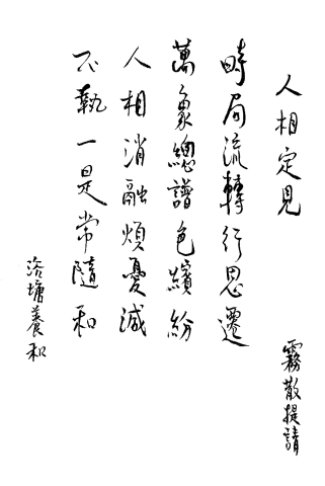 人相定見
時局流轉行思遷
萬象總譜色繽紛
人相消融煩憂減
不執一是常隨和
霧散提請
浴塘養和